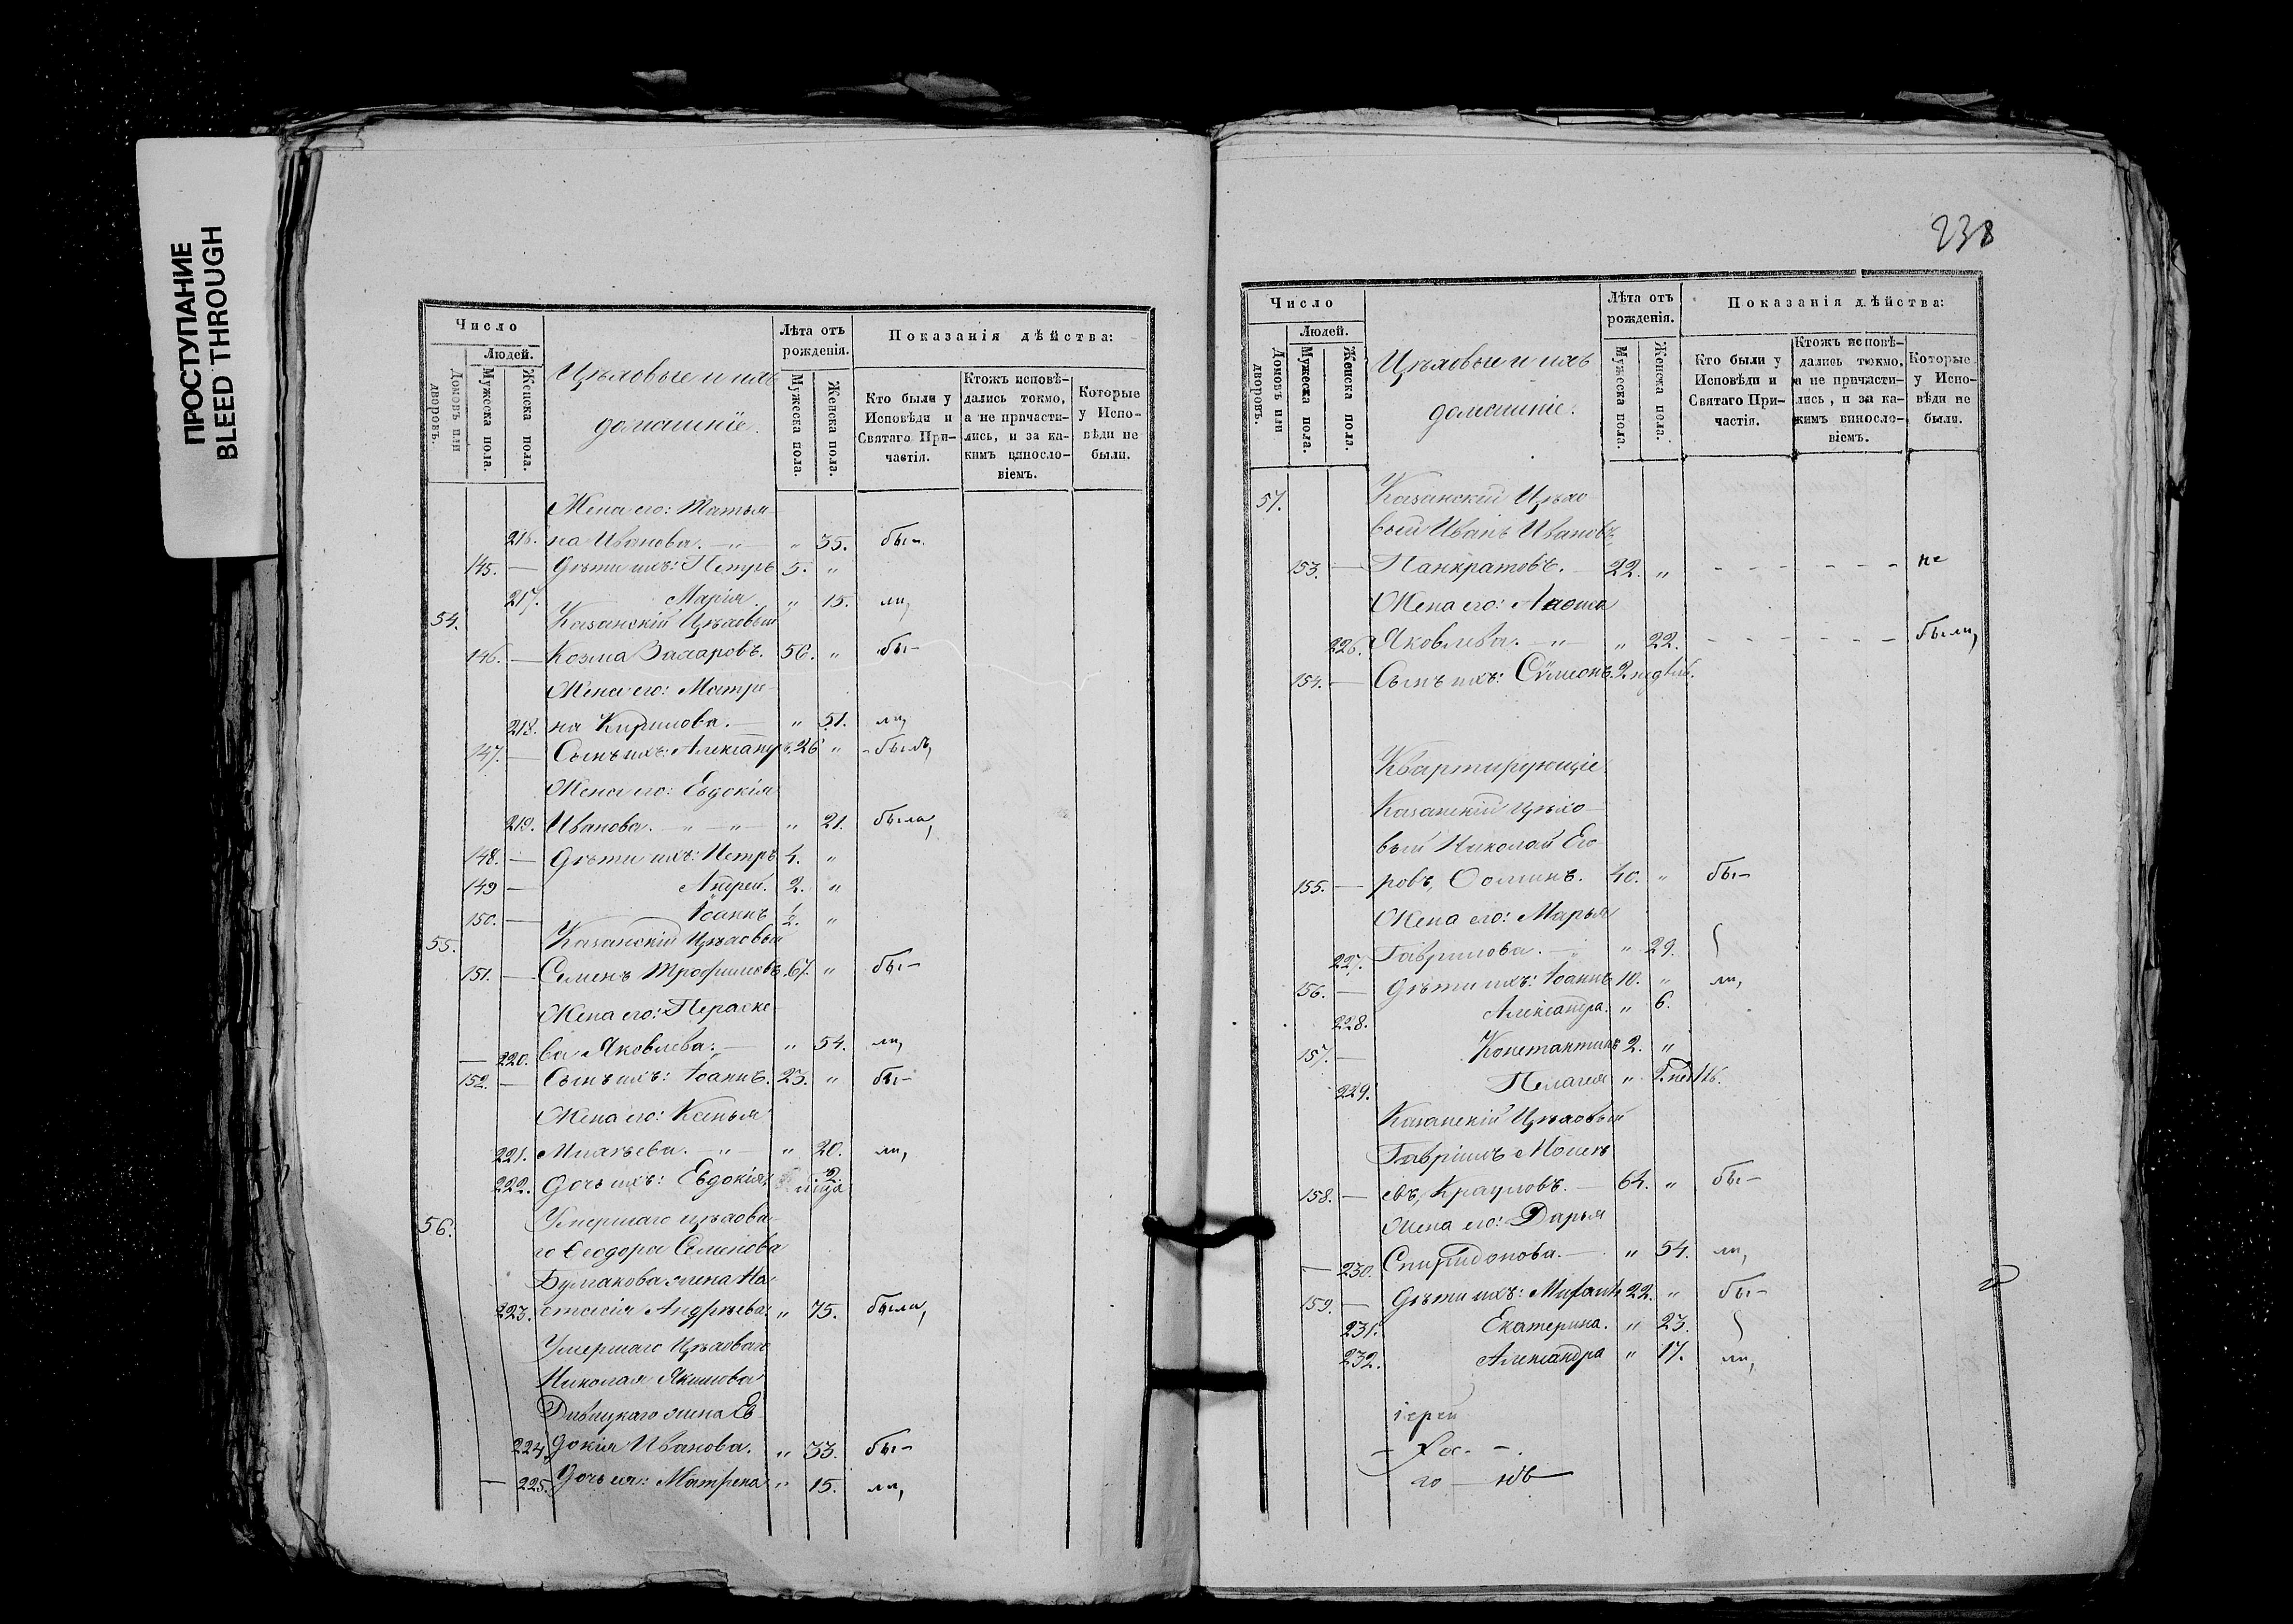 ПРОСТУПАНИЕ
BLEED THROUGH
Число
Людей.
Домовъ или дворовъ.
Мужеска пола.
Женска пола.
Цѣховые и ихъ
домашніе.
Лѣта отъ рожденія.
Мужеска пола.
Женска пола.
Показанія дѣйства:
Кто были у Исповѣди и Святаго Причастія.
Ктожъ исповѣдались токмо, а не причастились, и за какимъ винословіемъ.
Которые у Исповѣди не были.
Жена его: Татья-
216. на Иванова. — „ — „ 35. бы-
145. — Дѣти ихъ: Петръ 5. „
217. Марія. „ 15. ли,
54. Казанскій Цѣховый
146. — Козма Захаровъ. 56. „ бы-
Жена его: Матре-
218. на Кирилова. — „ 51. ли,
147. — Сынъ ихъ: Александръ, 26 „ - былъ,
Жена его: Евдокія
219. Иванова. — „ — „ — „ 21. была,
148. — Дѣти ихъ: Петръ 4. „
149 — Андрей. 2. „
150. — Іоаннъ ½. „
55. Казанскій Цѣховый
151. — Семенъ Трофимовъ. 67. „ бы-
Жена его: Параске-
— 220. ва Яковлева. — „ 54. ли,
152. — Сынъ ихъ: Іоаннъ. 23. „ бы-
Жена его: Ксенья
221. Михѣева. — „ — „ 20. ли,
222. Дочь ихъ: Евдокія,
56. Умершаго цѣхова-
го Ѳеодора Семенова
жена На-
223. стасія Андрѣева. „ 75. была,
Умершаго Цѣховаго
Николая Якимова
жена Ев-
224. докія Иванова. „ 33. бы-
— 225. Дочь ея: Матрена „ 15. ли,
238
Число
Людей.
Домовъ или дворовъ.
Мужеска пола.
Женска пола.
Цѣховые и ихъ
домашніе.
Лѣта отъ рожденія.
Мужеска пола.
Женска пола.
Показанія дѣйства:
Кто были у Исповѣди и Святаго Причастія.
Ктожъ исповѣдались токмо, а не причастились, и за какимъ винословіемъ.
Которые у Исповѣди не были.
57. Казанскій Цѣхо-
вый Иванъ Ивановъ,
153. — Панкратовъ. 22. „ - - - - - - не
Жена его:
226. Яковлева. — „ — „ 22. - - - - - - были,
154. — Сынъ ихъ: Сѵмеонъ. 2. недѣль.
Квартирующіе
Казанскій Цѣхо-
вый Николай Его-
155. — ровъ, Ѳоминъ. 40. „ бы-
Жена его: Марья
227. Гаврилова. — „ „ 29.
156. — Дѣти ихъ: Іоаннъ 10. „ ли,
228. Александра. „ 6.
157. — Константинъ 2. „
229. Пелагея „
Казанскій Цѣховый
Гавріилъ Моисе-
158. — евъ, Крауловъ. — 64. „ бы-
Жена его: Дарья
— 230. Спиридонова. — „ 54. ли,
159. — Дѣти ихъ: 22. „ бы-
231. Екатерина. „ 23.
232. Александра „ 17. ли,
іерей